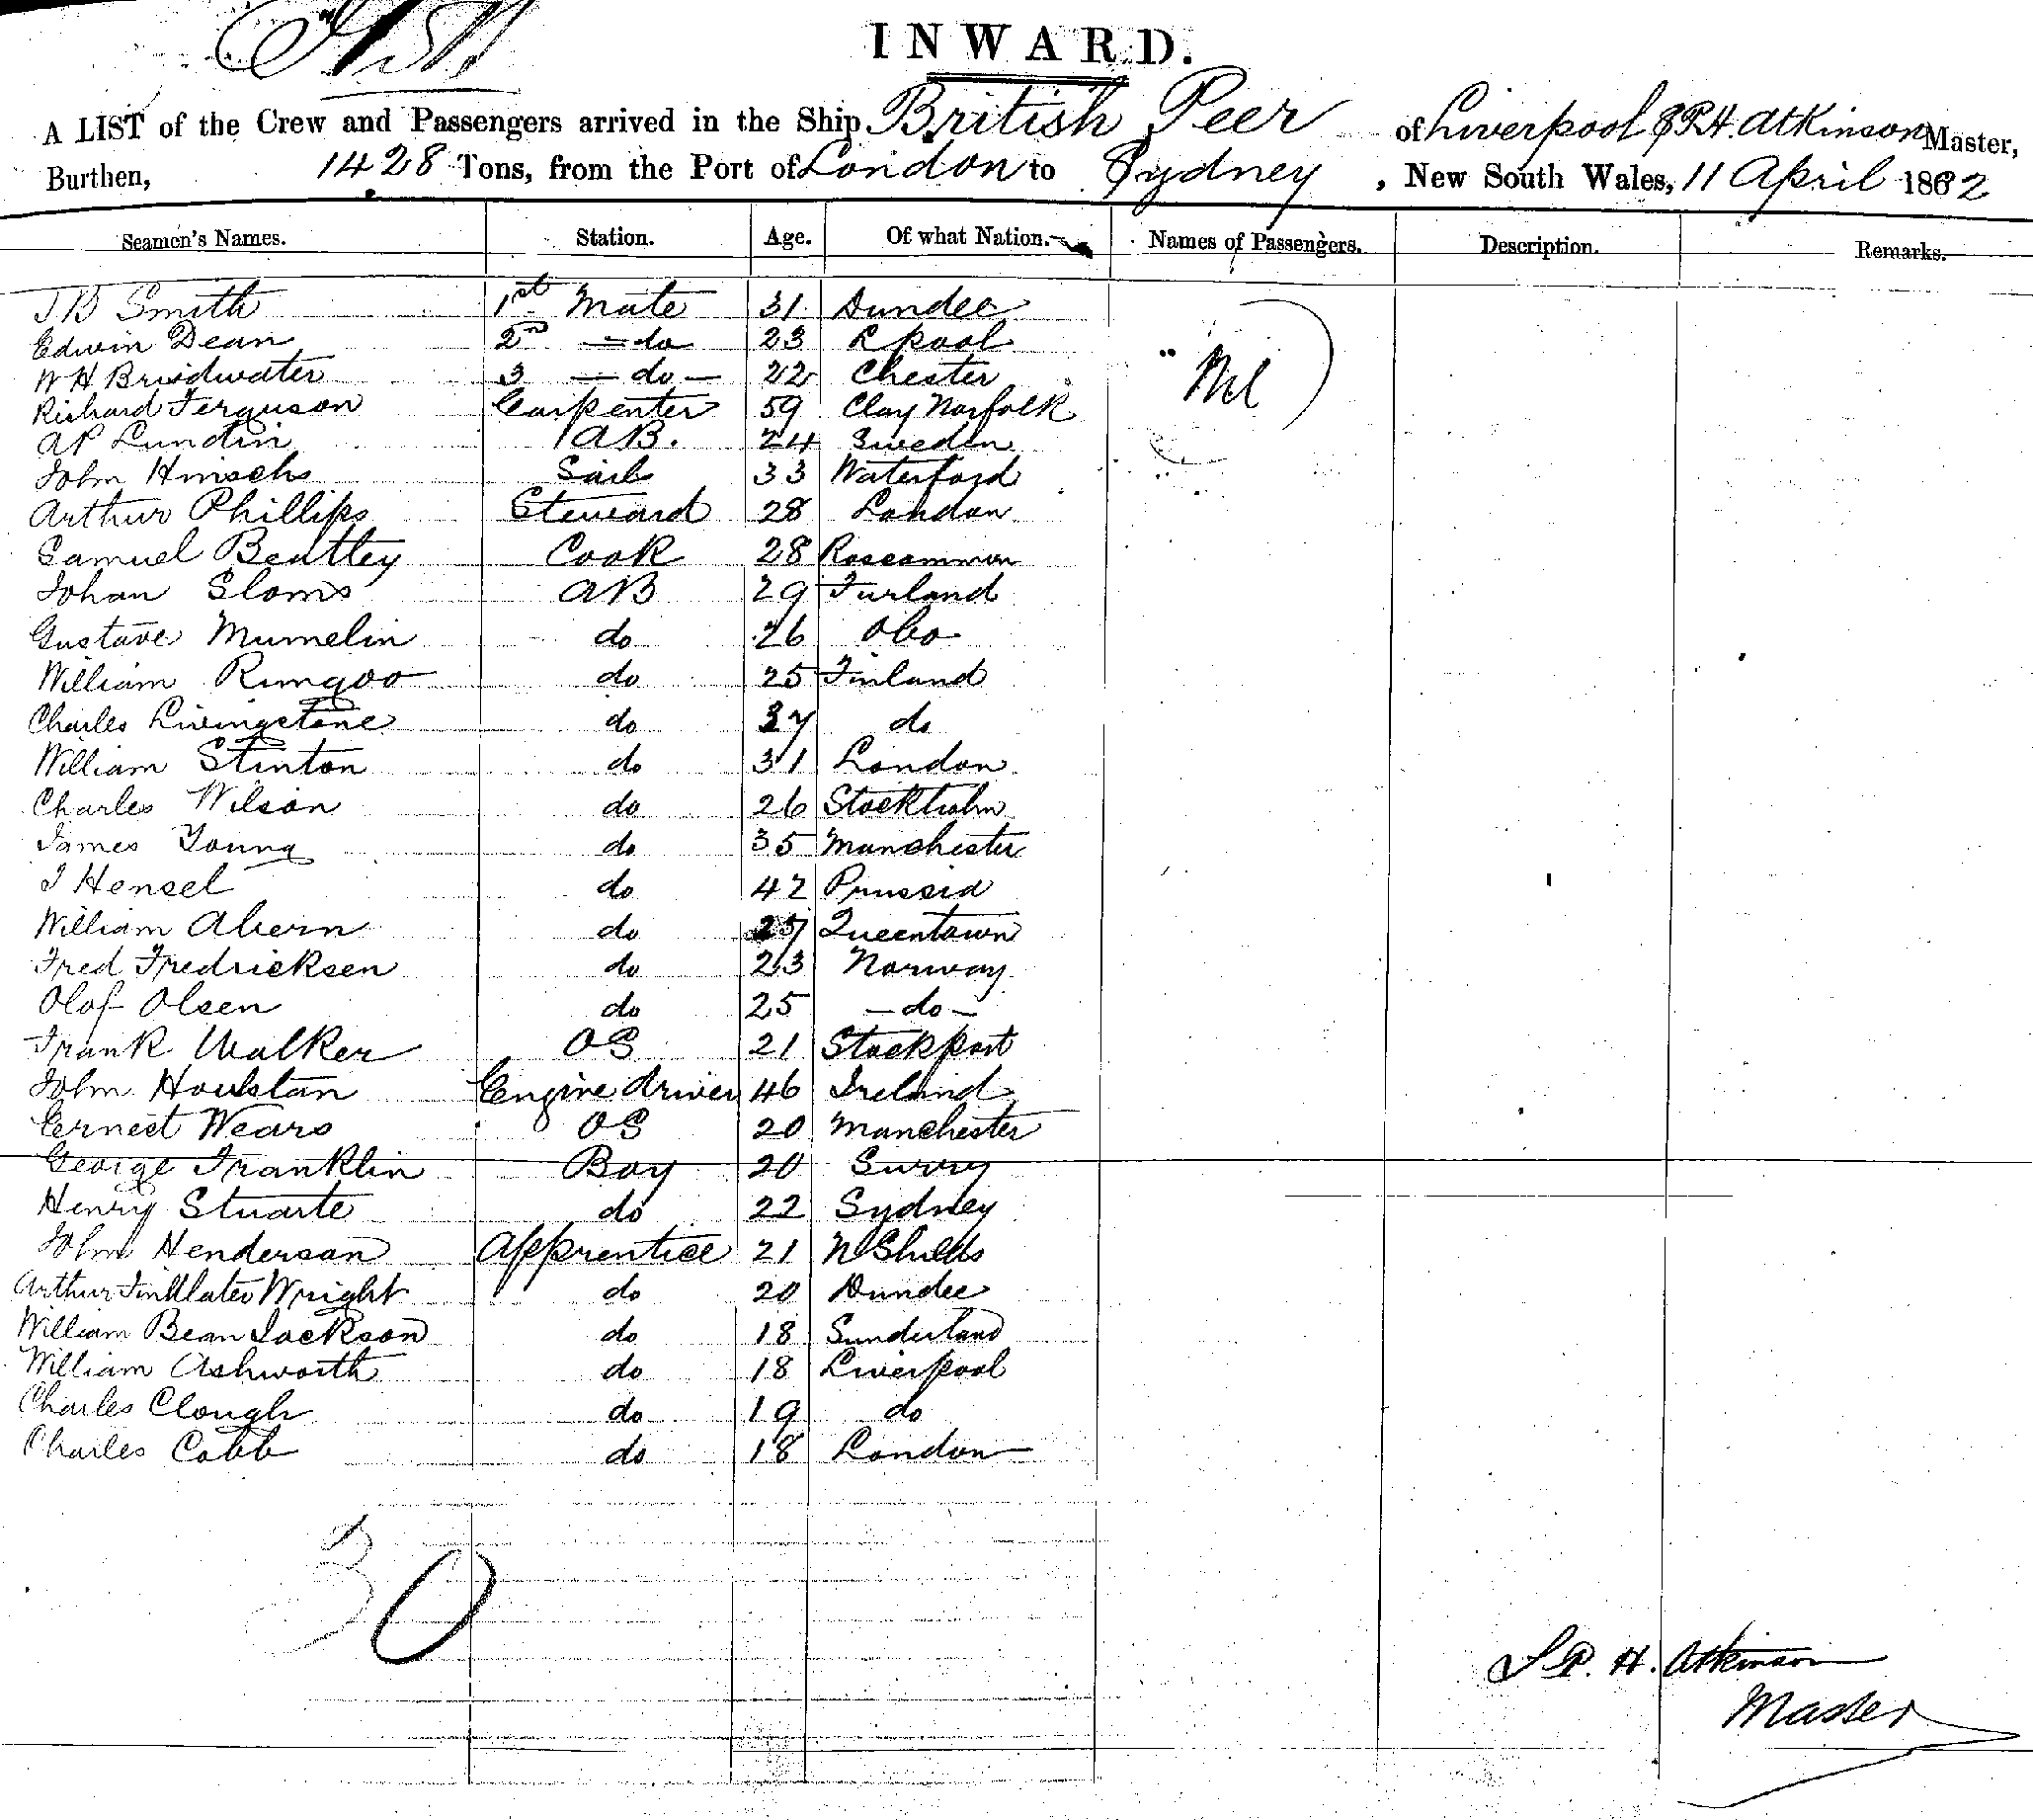 INWARD.
A LIST of the Crew and Passengers arrived in the Ship British Peer of Liverpool J P.H. Atkinson Master,
Burthen, 1428 Tons, from the Port of London to Sydney, New South Wales, 11 April 1882
Seamen's Names. Station. Age. Of what Nation. Names of Passengers. Description. Remarks.
J B Smith 1st Mate 31 Dundee Nil
Edwin Dean 2n — do 23 Lpool
W H Bridwater 3 — do — 22 Chester
Richard Ferguson Carpenter 59 Clay Norfolk
AP Lundin AB. 24 Sweden
John Sails 33 Waterford
Arthur Phillips Steward 28 London
Samuel Beattey Cook 28 Roscommon
Johan Sloms AB 29
Gustave Mumelin do 26 Obo
William do 25 Finland
Charles Livingstone do 37 do
William Stinton do 31 London
Charles Wilson do 26 Stockholm
James Young do 35 Manchester
J Hensel do 42 Prussia
William Ahern do 25 Queentown
Fred Fredricksen do 23 Norway
Olof Olsen do 25 — do —
Frank Walker OS 21 Stockport
John Houlstan Engine driver 46 Ireland
Ernest Wears OS 20 Manchester
George Franklin Boy 20 Surry
Henry Stuarte do 22 Sydney
John Henderson Apprentice 21 N Shields
Arthur Wright do 20 Dundee
William Bean Jackson do 18 Sunderland
William Ashworth do 18 Liverpool
Charles Clough do 19 do
Charles Cobb do 18 London
30
J P. H. Atkinson
Master